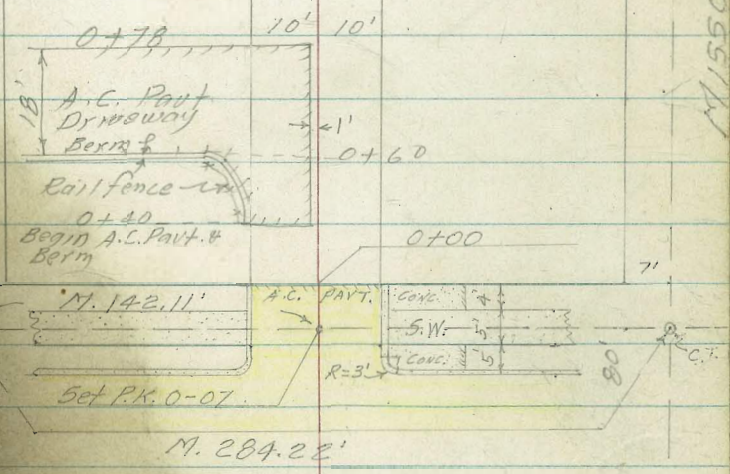 0+78
10' 10'
18'
A.C. Pavt
Driveway
Berm &
1'
0+60
Rail fence
0+40
Begin A.C. Pavt. &
Berm
0+00
7'
M. 142.11'
A.C. PAVT.
CONC.
4'
S.W.
5'
CONC.
5'
R=3'
80'
C.I.
Set P.K. 0-07
M. 284.22'
M 1550